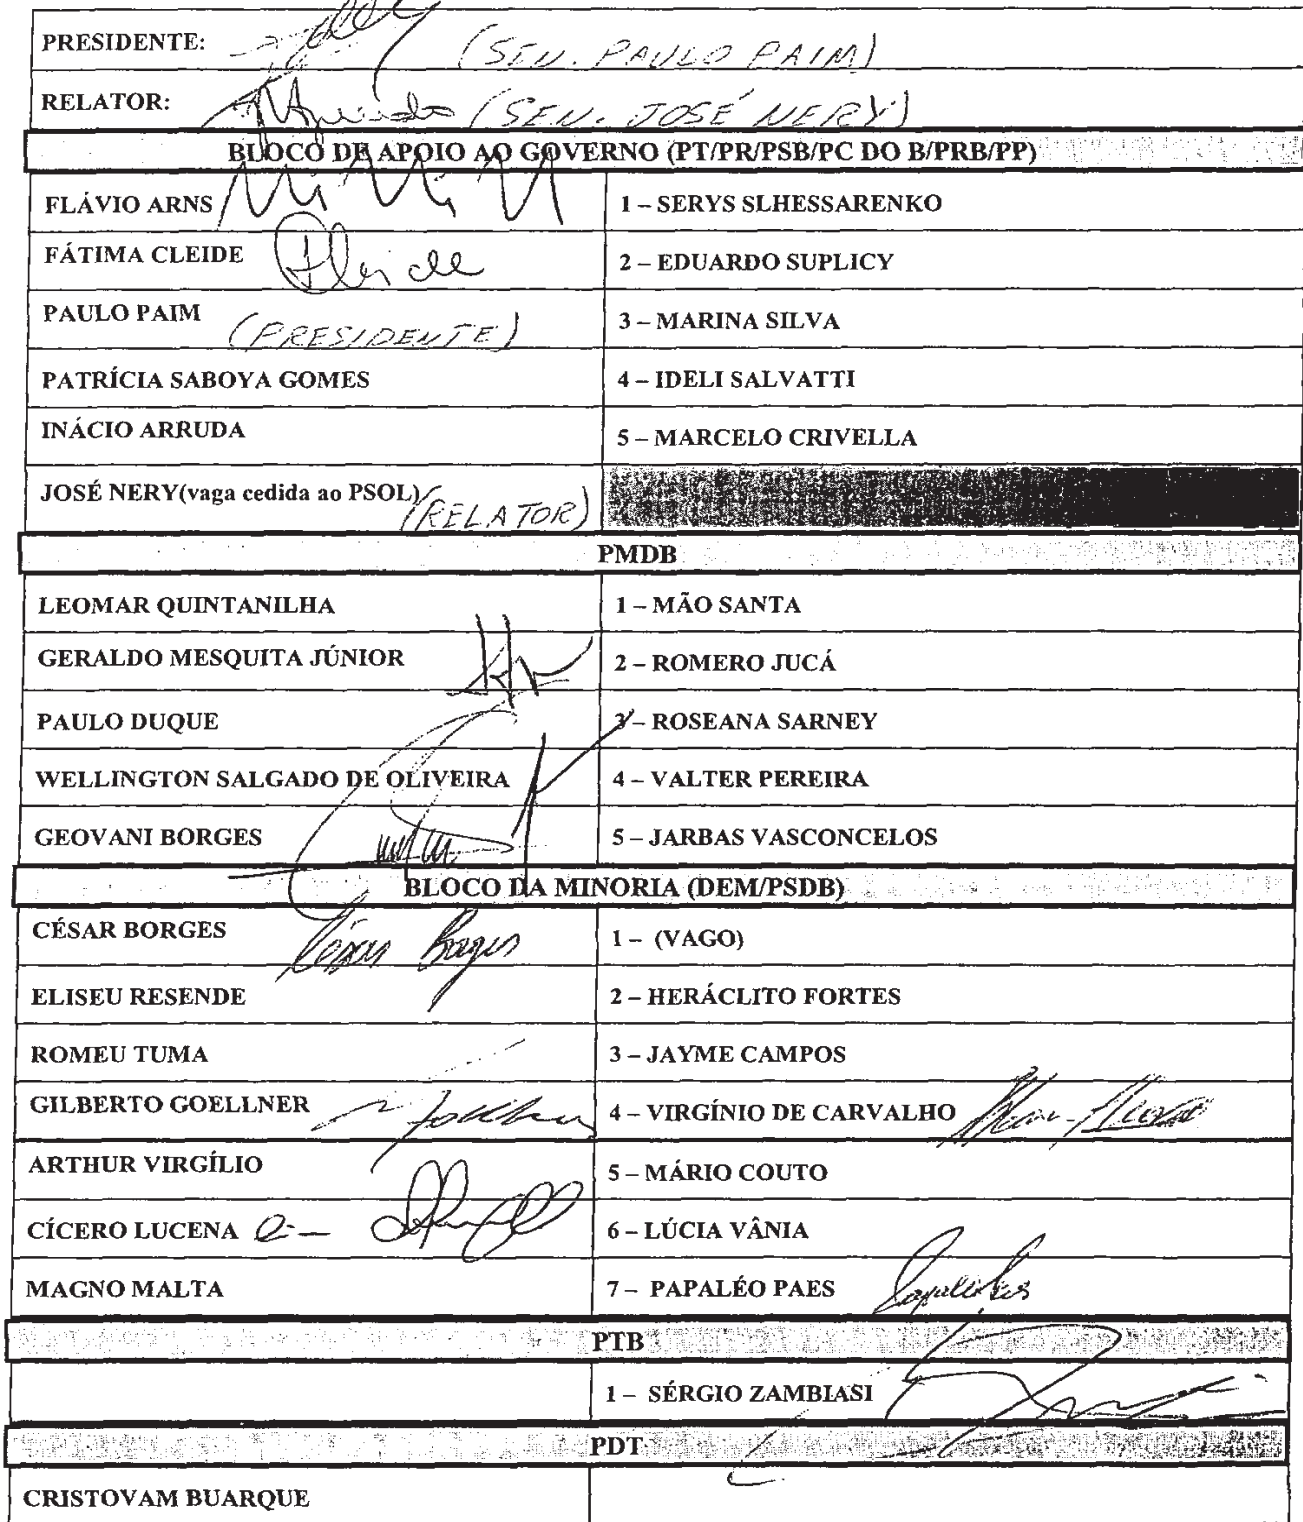 PRESIDENTE: (SEN. PAULO PAIM)
RELATOR: (SEN. JOSÉ NERY)
BLOCO DE APOIO AO GOVERNO (PT/PR/PSB/PC DO B/PRB/PP)
FLÁVIO ARNS 1 – SERYS SLHESSARENKO
FÁTIMA CLEIDE Cleide 2 – EDUARDO SUPLICY
PAULO PAIM (PRESIDENTE) 3 – MARINA SILVA
PATRÍCIA SABOYA GOMES 4 – IDELI SALVATTI
INÁCIO ARRUDA 5 – MARCELO CRIVELLA
JOSÉ NERY(vaga cedida ao PSOL) (RELATOR)
PMDB
LEOMAR QUINTANILHA 1 – MÃO SANTA
GERALDO MESQUITA JÚNIOR 2 – ROMERO JUCÁ
PAULO DUQUE 3 – ROSEANA SARNEY
WELLINGTON SALGADO DE OLIVEIRA 4 – VALTER PEREIRA
GEOVANI BORGES 5 – JARBAS VASCONCELOS
BLOCO DA MINORIA (DEM/PSDB)
CÉSAR BORGES César Borges 1 – (VAGO)
ELISEU RESENDE 2 – HERÁCLITO FORTES
ROMEU TUMA 3 – JAYME CAMPOS
GILBERTO GOELLNER 4 – VIRGÍNIO DE CARVALHO
ARTHUR VIRGÍLIO 5 – MÁRIO COUTO
CÍCERO LUCENA 6 – LÚCIA VÂNIA
MAGNO MALTA 7 – PAPALÉO PAES
PTB
1 – SÉRGIO ZAMBIASI
PDT
CRISTOVAM BUARQUE